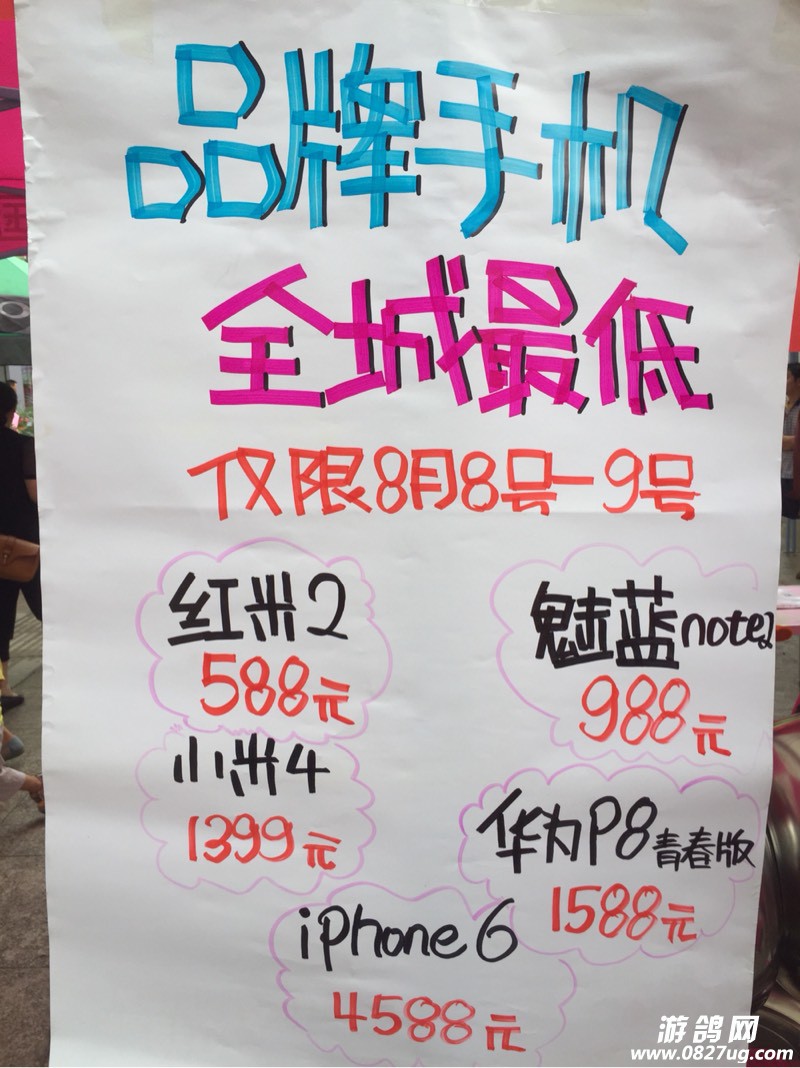 品牌手机
全城最低
仅限8月8号-9号
红米2
588元
魅蓝note2
988元
小米4
1399元
华为P8青春版
1588元
iphone6
4588元
游鸽网
www.0827ug.com